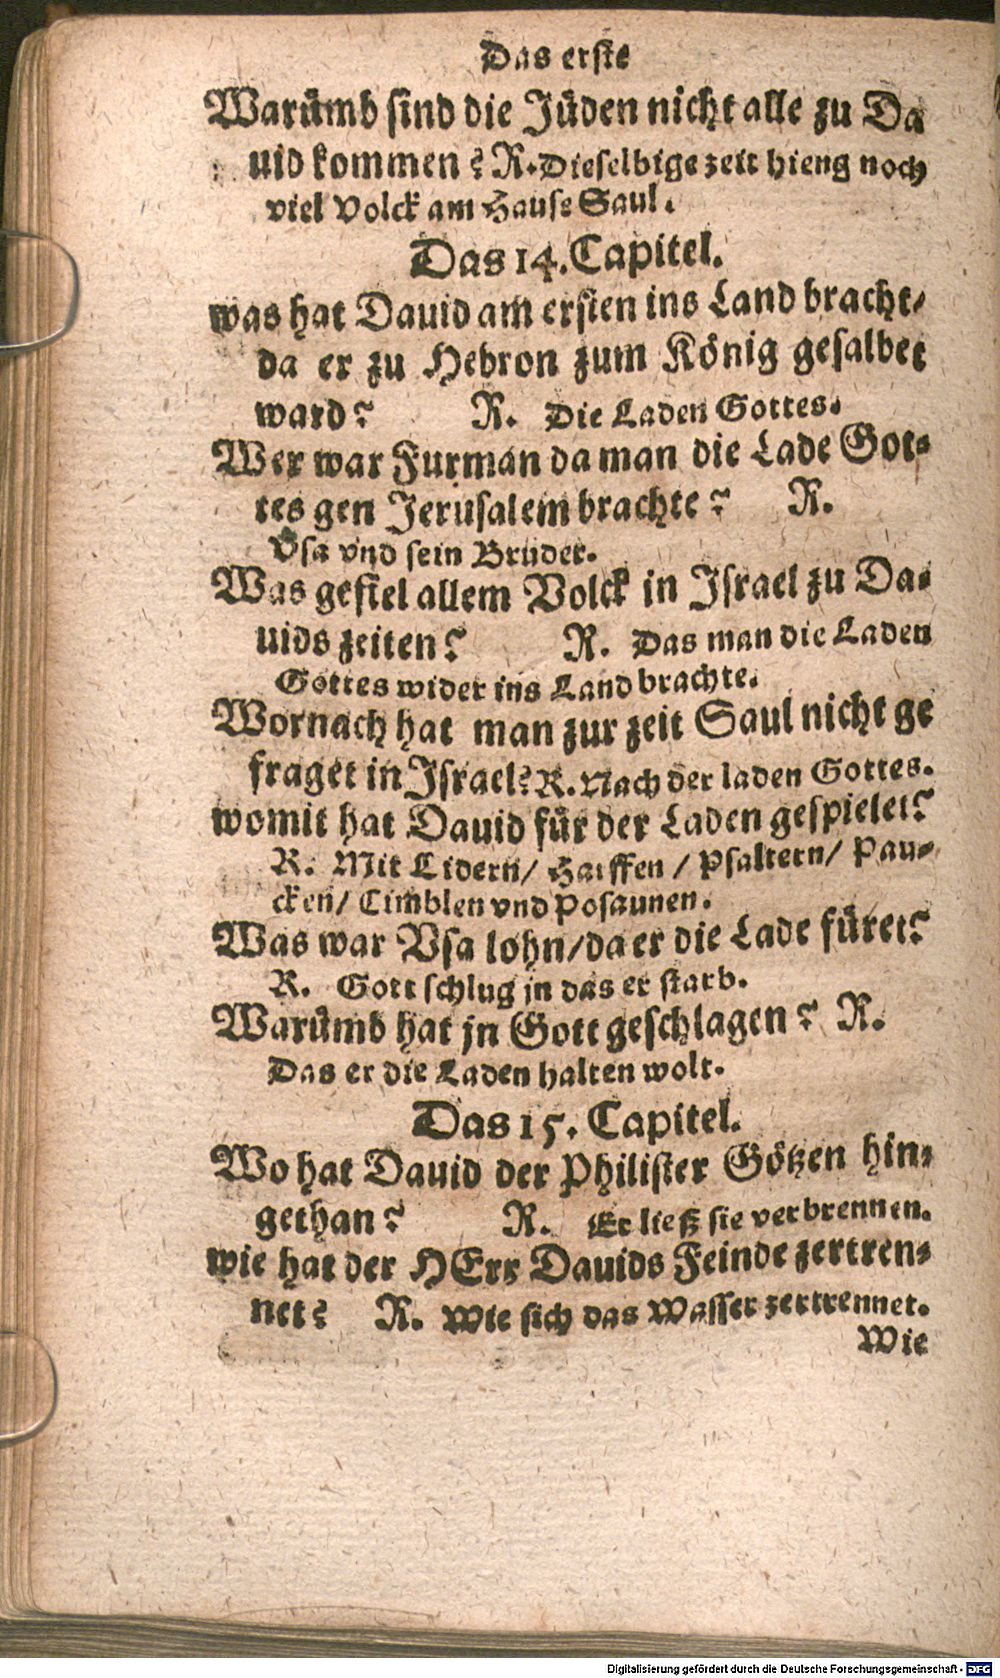 Das erste
Warümb sind die Jüden nicht alle zu Da
uid kommen? R. Dieselbige zeit hieng noch
viel Volck am Hause Saul.
Das 14. Capitel.
was hat Dauid am ersten ins Land bracht/
da er zu Hebron zum König gesalbet
ward? R. Die Laden Gottes.
Wer war Furman da man die Lade Got-
tes gen Jerusalem brachte? R.
Vsa vnd sein Bruder.
Was gefiel allem Volck in Israel zu Da-
uids zeiten? R. Das man die Laden
Gottes wider ins Land brachte.
Wornach hat man zur zeit Saul nicht ge
fraget in Israel? R. Nach der laden Gottes.
womit hat Dauid für der Laden gespielet?
R. Mit Lidern/ Harffen / Psaltern/ Pau-
cken/ Cimblen vnd Posaunen.
Was war Vsa lohn/ da er die Lade füret?
R. Gott schlug jn das er starb.
Warümb hat jn Gott geschlagen? R.
Das er die Laden halten wolt.
Das 15. Capitel.
Wo hat Dauid der Philister Götzen hin-
gethan? R. Er ließ sie verbrennen.
wie hat der HErr Dauids Feinde zertren-
net? R. Wie sich das Wasser zertrennet.
Wie
Digitalisierung gefördert durch die Deutsche Forschungsgemeinschaft - DFG